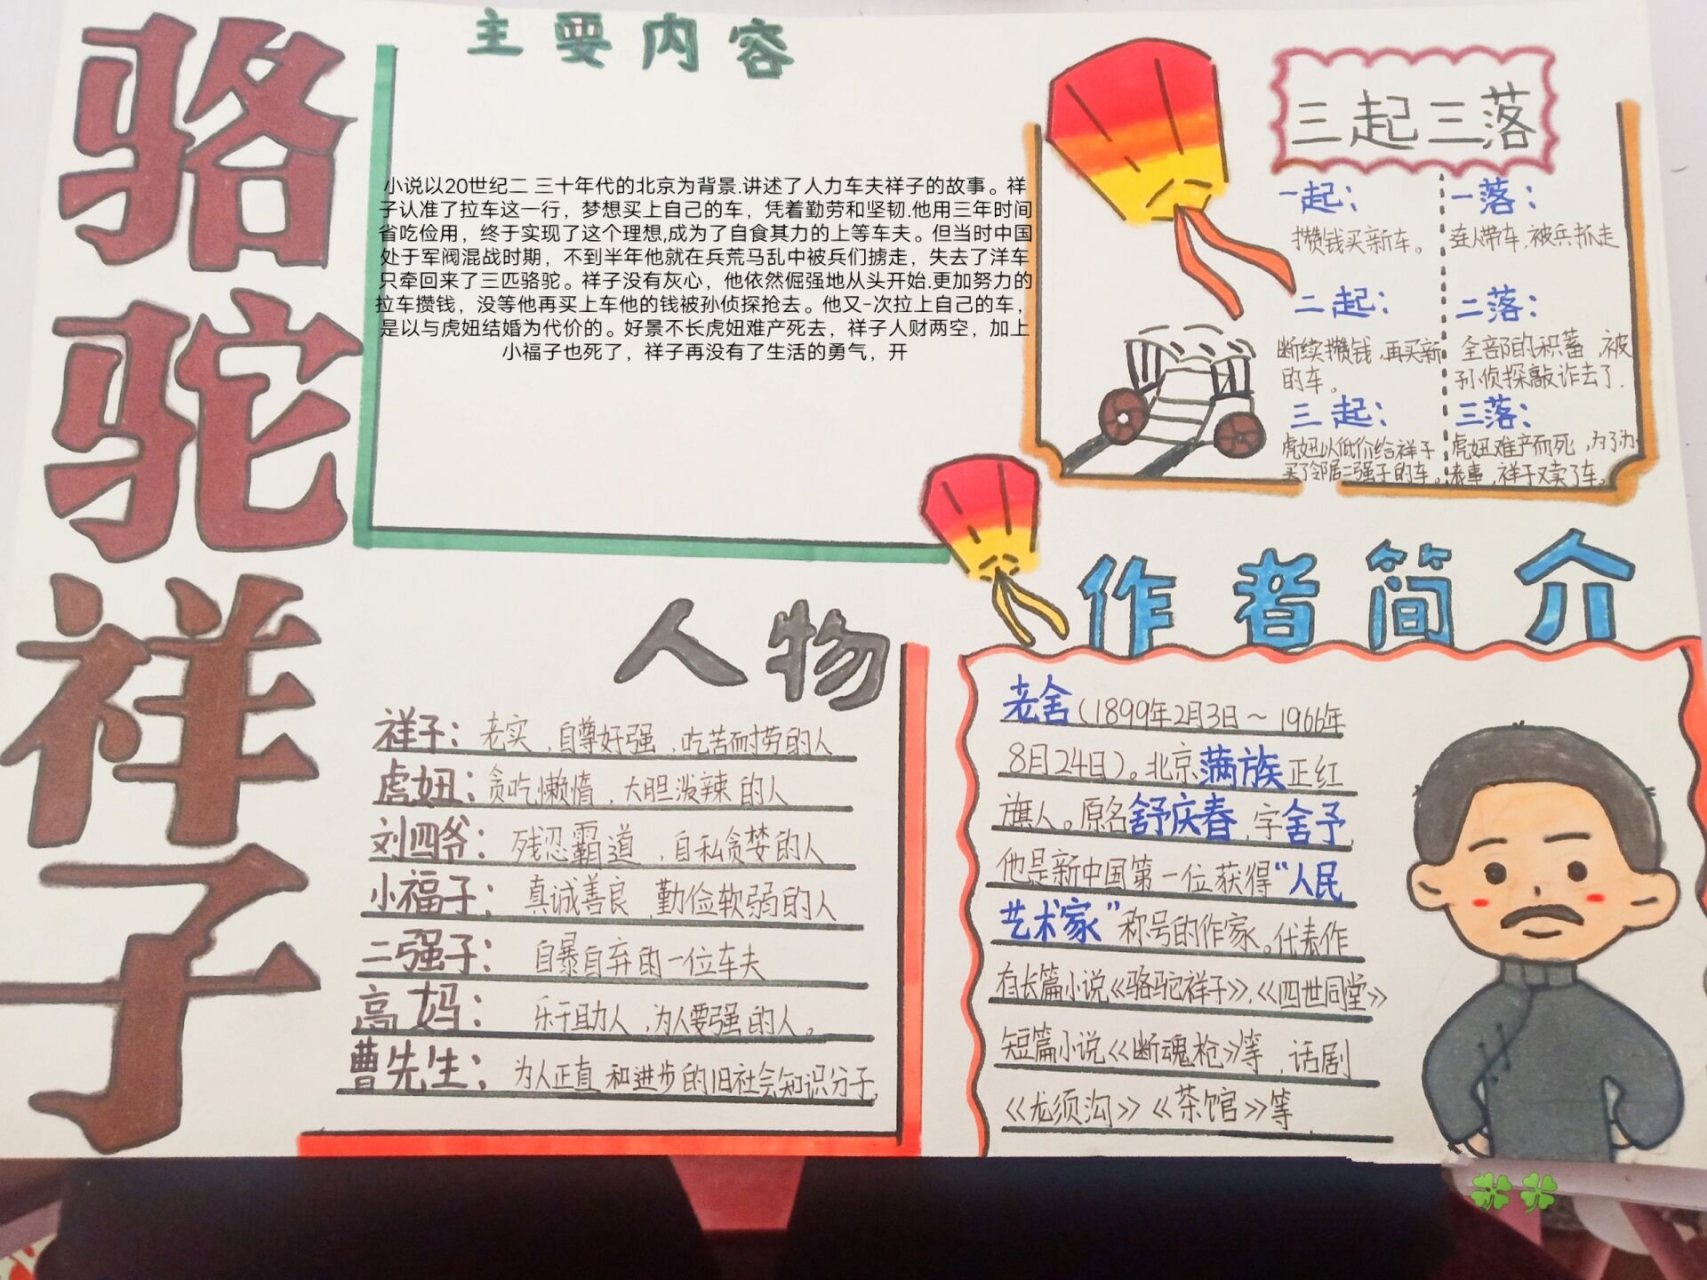 骆驼祥子
主要内容
小说以20世纪二 三十年代的北京为背景.讲述了人力车夫祥子的故事。祥
子认准了拉车这一行，梦想买上自己的车，凭着勤劳和坚韧.他用三年时间
省吃俭用，终于实现了这个理想,成为了自食其力的上等车夫。但当时中国
处于军阀混战时期，不到半年他就在兵荒马乱中被兵们掳走，失去了洋车
只牵回来了三匹骆驼。祥子没有灰心，他依然倔强地从头开始.更加努力的
拉车攒钱，没等他再买上车他的钱被孙侦探抢去。他又-次拉上自己的车，
是以与虎妞结婚为代价的。好景不长虎妞难产死去，祥子人财两空，加上
小福子也死了，祥子再没有了生活的勇气，开
三起三落
一起：
攒钱买新车。
一落：
连人带车,被兵抓走
二起：
断续攒钱,再买新
的车。
二落：
全部的积蓄,被
孙侦探敲诈去了.
三起：
虎妞以低价给祥子
买了邻居二强子的车。
三落：
虎妞难产而死,为了办
丧事,祥子又卖了车。
人物
祥子：老实,自尊好强,吃苦耐劳的人
虎妞：贪吃懒惰,大胆泼辣的人
刘四爷：残忍霸道,自私贪婪的人
小福子：真诚善良,勤俭软弱的人
二强子：自暴自弃的一位车夫
高妈：乐于助人,为人要强的人。
曹先生：为人正直和进步的旧社会知识分子,
作者简介
老舍(1899年2月3日～1966年
8月24日)。北京满族正红
旗人。原名舒庆春,字舍予,
他是新中国第一位获得“人民
艺术家”称号的作家。代表作
有长篇小说《骆驼祥子》,《四世同堂》
短篇小说《断魂枪》等,话剧
《龙须沟》《茶馆》等